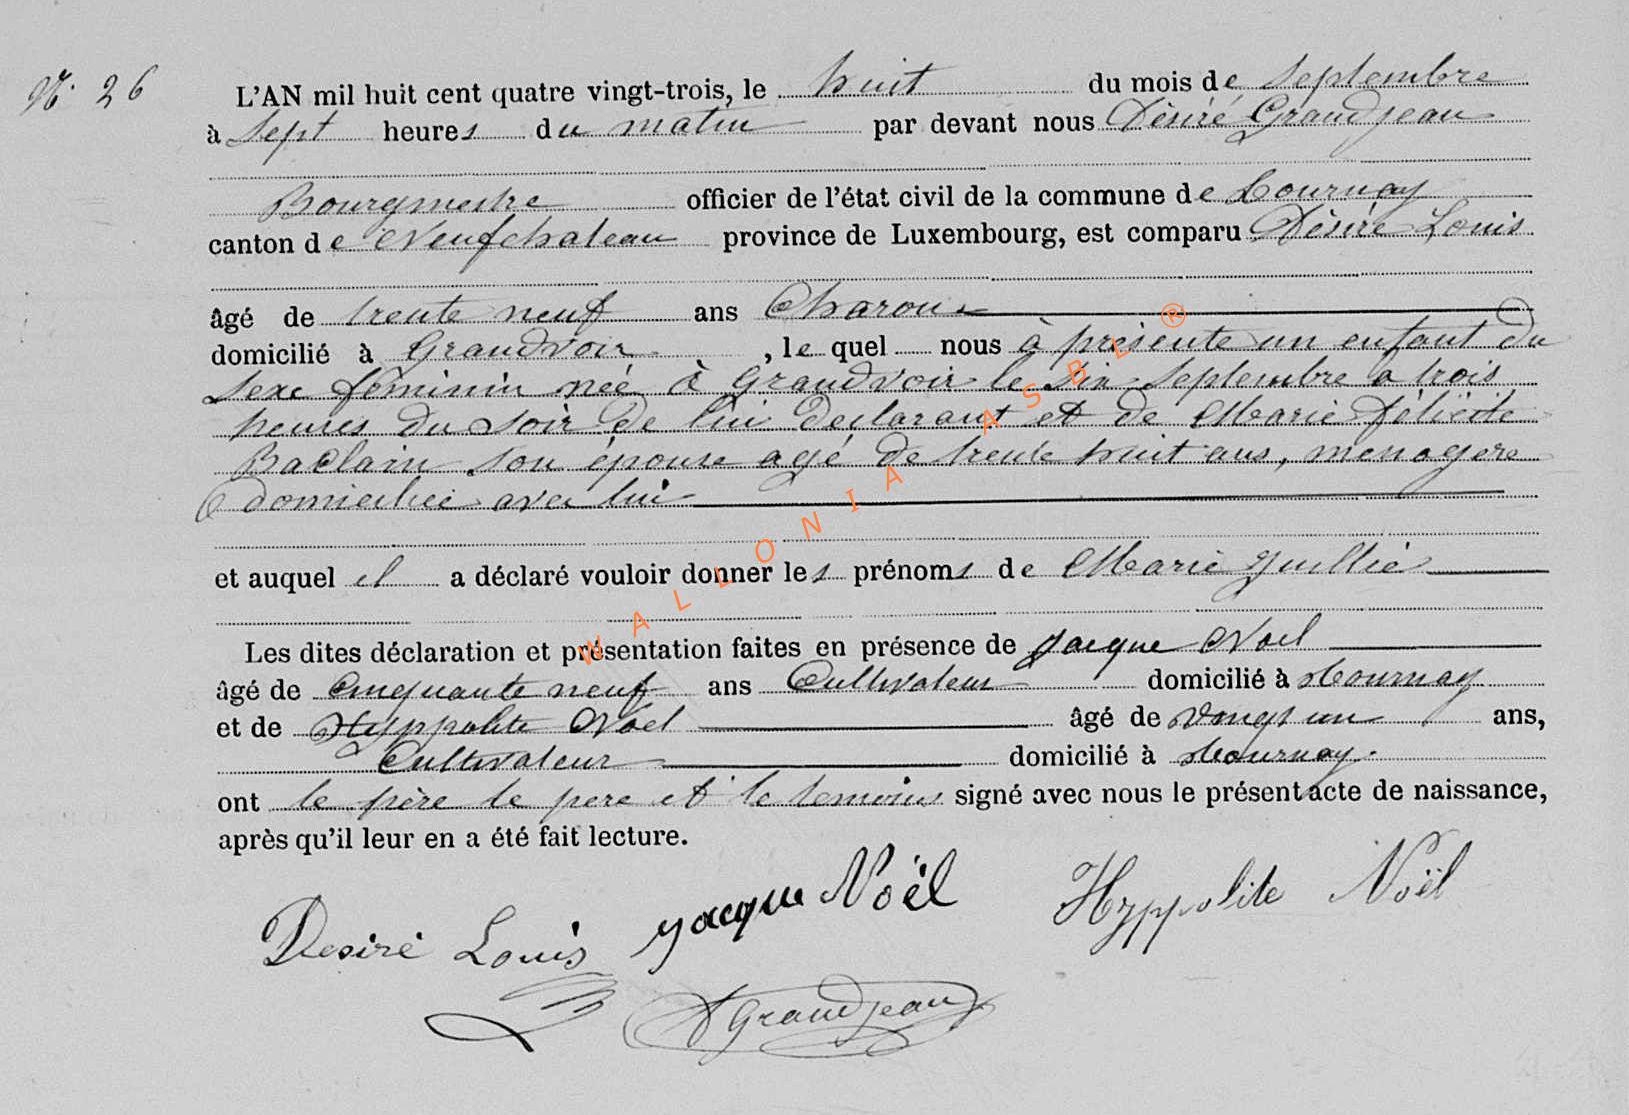 N° 26
L'AN mil huit cent quatre vingt-trois, le huit du mois de Septembre
à Sept heures du matin par devant nous Désiré Grandjean
Bourgmestre officier de l'état civil de la commune de Tournay
canton de Neufchateau province de Luxembourg, est comparu Désiré Louis
âgé de trente neuf ans Charon
domicilié à Grandvoir, le quel nous à présente un enfant du
sexe féminin née à Grandvoir le six Septembre a trois
heures du soir de lui declarant et de Marie Félicité
Baclain son épouse agé de trente huit ans, menagere
domiciliée avec lui
et auquel il a déclaré vouloir donner les prénoms de Marie Jullie
Les dites déclaration et présentation faites en présence de Jacque Noel
âgé de Cinquante neuf ans Cultivateur domicilié à Tournay
et de Hyppolite Noel âgé de vingt un ans,
Cultivateur domicilié à Tournay.
ont le père le pere et le temoins signé avec nous le présent acte de naissance,
après qu'il leur en a été fait lecture.
Desiré Louis Jacque Noël Hyppolite Noël
D Grandjean
WALLONIA ASBL ®